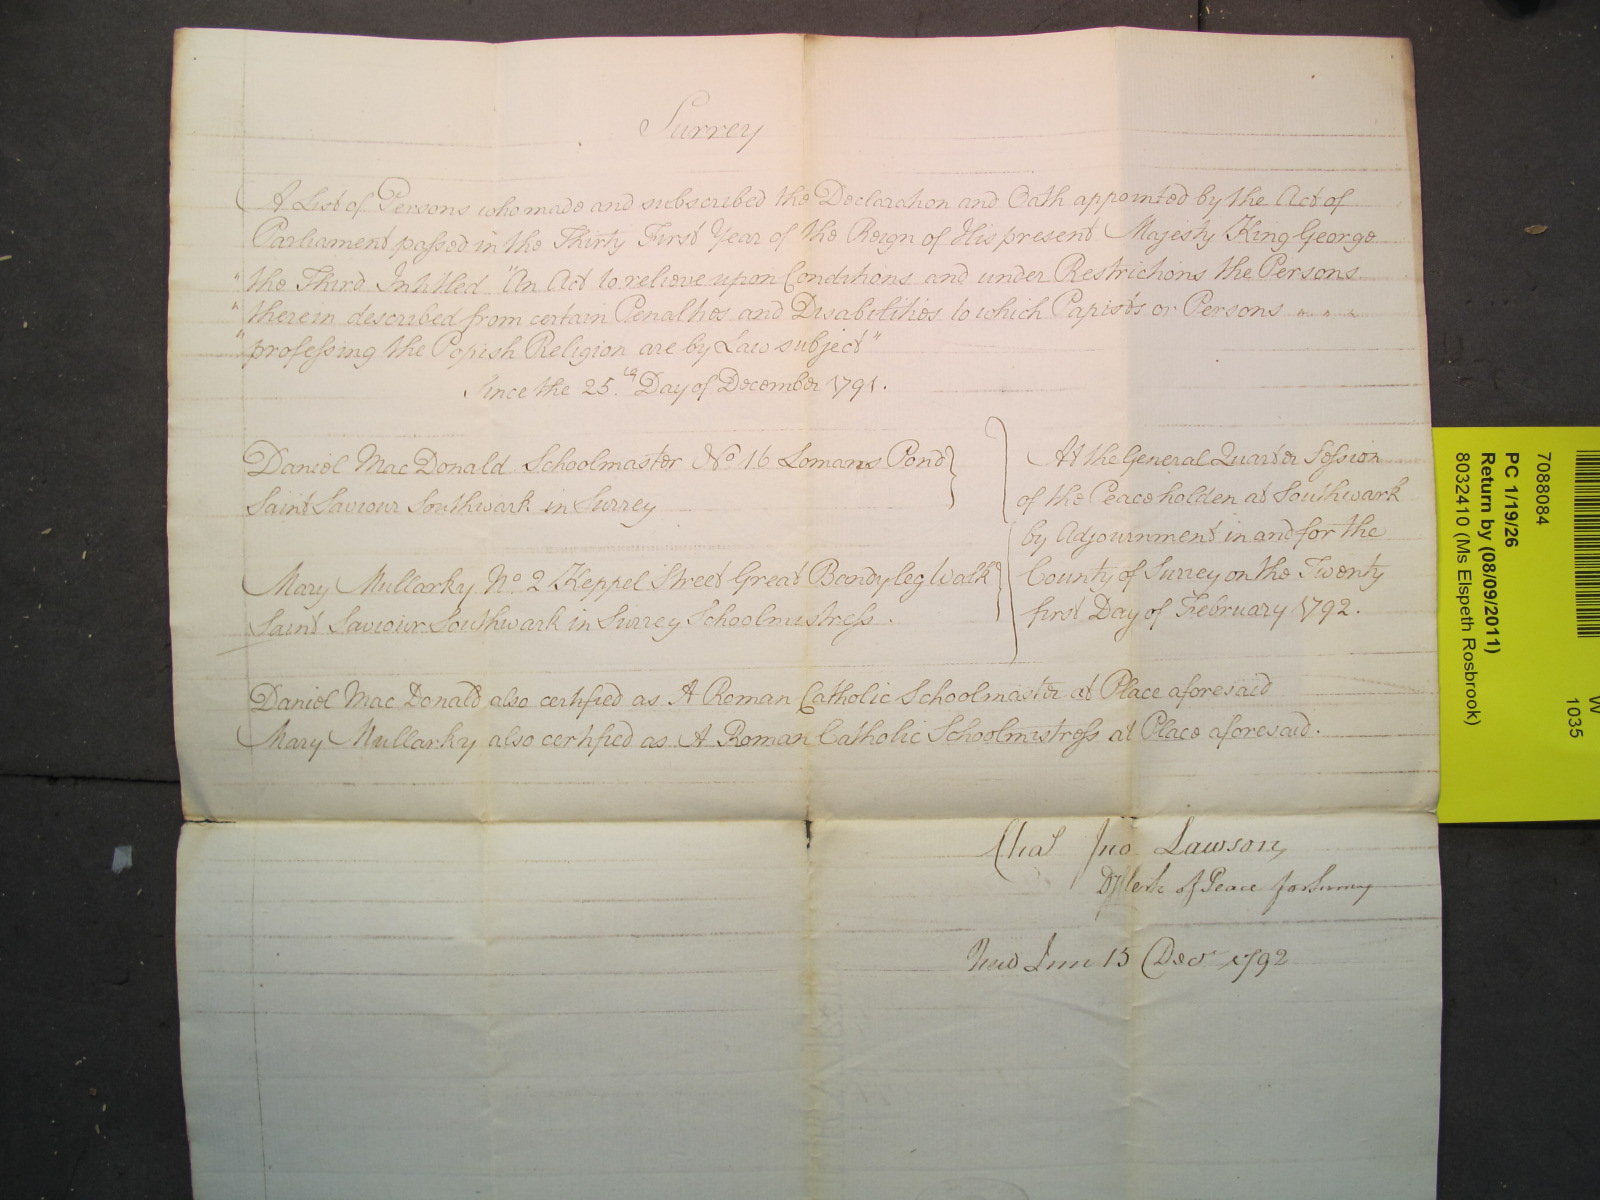 Surrey
A List of Persons who made and subscribed the Declaration and Oath appointed by the Act of
Parliament passed in the Thirty First Year of the Reign of His present Majesty King George
"the Third Intitled "An Act to relieve upon Conditions and under Restrictions the Persons
"therein described from certain Penalties and Disabilities to which Papists or Persons " " "
"professing the Popish Religion are by Law subject"
Since the 25th Day of December 1791.
Daniel Mac Donald Schoolmaster No 16 Lomans Pond
Saint Saviour Southwark in Surrey
Mary Mullarky No 2 Keppel Street Great Bandyleg Walk
Saint Saviour Southwark in Surrey Schoolmistress.
At the General Quarter Session
of the Peace holden at Southwark
by Adjournment in and for the
County of Surrey on the Twenty
first Day of February 1792.
Daniel Mac Donald also certified as A Roman Catholic Schoolmaster at Place aforesaid
Mary Mullarky also certified as A Roman Catholic Schoolmistress at Place aforesaid.
Chas Jno Lawson,
DyClerk of Peace for Surrey
New Inn 15 Decr 1792
W
1035
7088084
PC 1/19/26
Return by (08/09/2011)
8032410 (Ms Elspeth Rosbrook)